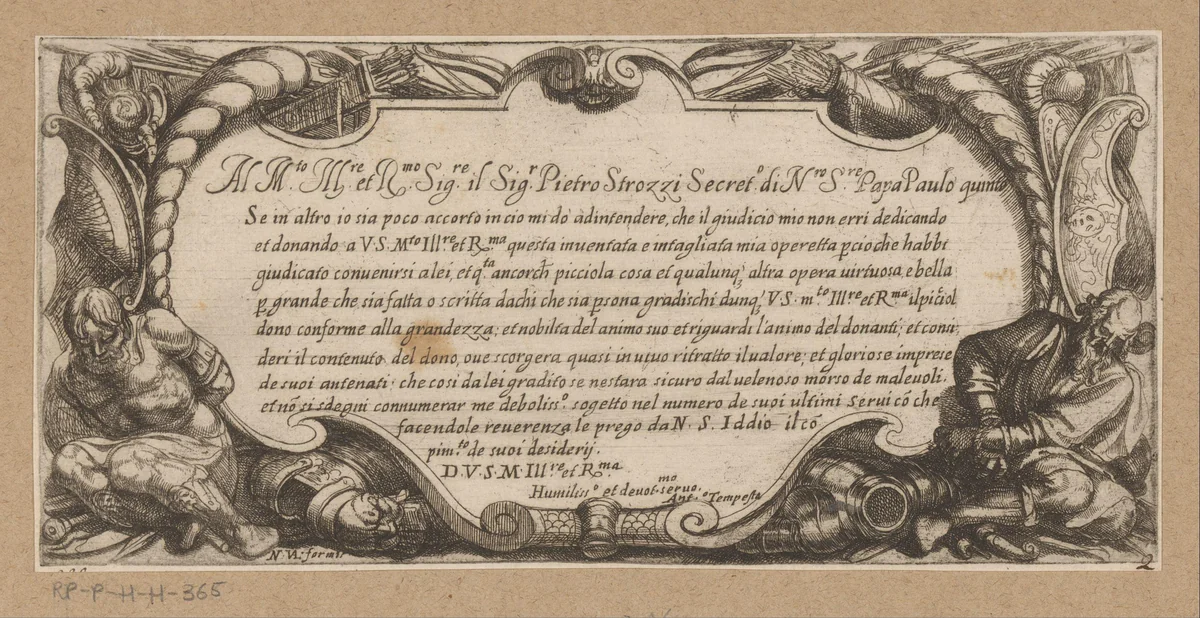 Al M.to Ill.re et R.mo Sig.re il Sig.r Pietro Strozzi Secret.o di N.ro S.re Papa Paulo quinto
Se in altro io sia poco accorto in cio mi dò adintendere, che il giudicio mio non erri dedicando
et donando a V.S. M.to Ill.re et R.ma questa inventata e intagliata mia operetta p̱cioche habbi
giudicato convenirsi a lei, et q.ta ancorch̃ picciola cosa et qualunq; altra opera uirtuosa, e bella
p̱ grande che sia fatta o scritta dachi che sia p̱sona gradischi dunq; V.S. m.to Ill.re et R.ma il piciol
dono conforme alla grandezza; et nobilta del animo suo et riguardi l'animo del donanti; et consi
deri il contenuto del dono, oue scorgera quasi in uiuo ritratto il ualore; et gloriose imprese
de suoi antenati; che cosi da lei gradito se nestara sicuro dal uelenoso morso de maleuoli.
et nō si sdegni connumerar me deboliss.o sogetto nel numero de suoi ultimi Serui cō che
facendole reuerenza le prego da N. S. Iddio il cō
pim.to de suoi desiderij.
D.V.S.M. Ill.re et R.ma
Humiliss.o et devot.mo servo.
Ant.o Tempesta
N. VA. formis
2
RP-P-H-H-365